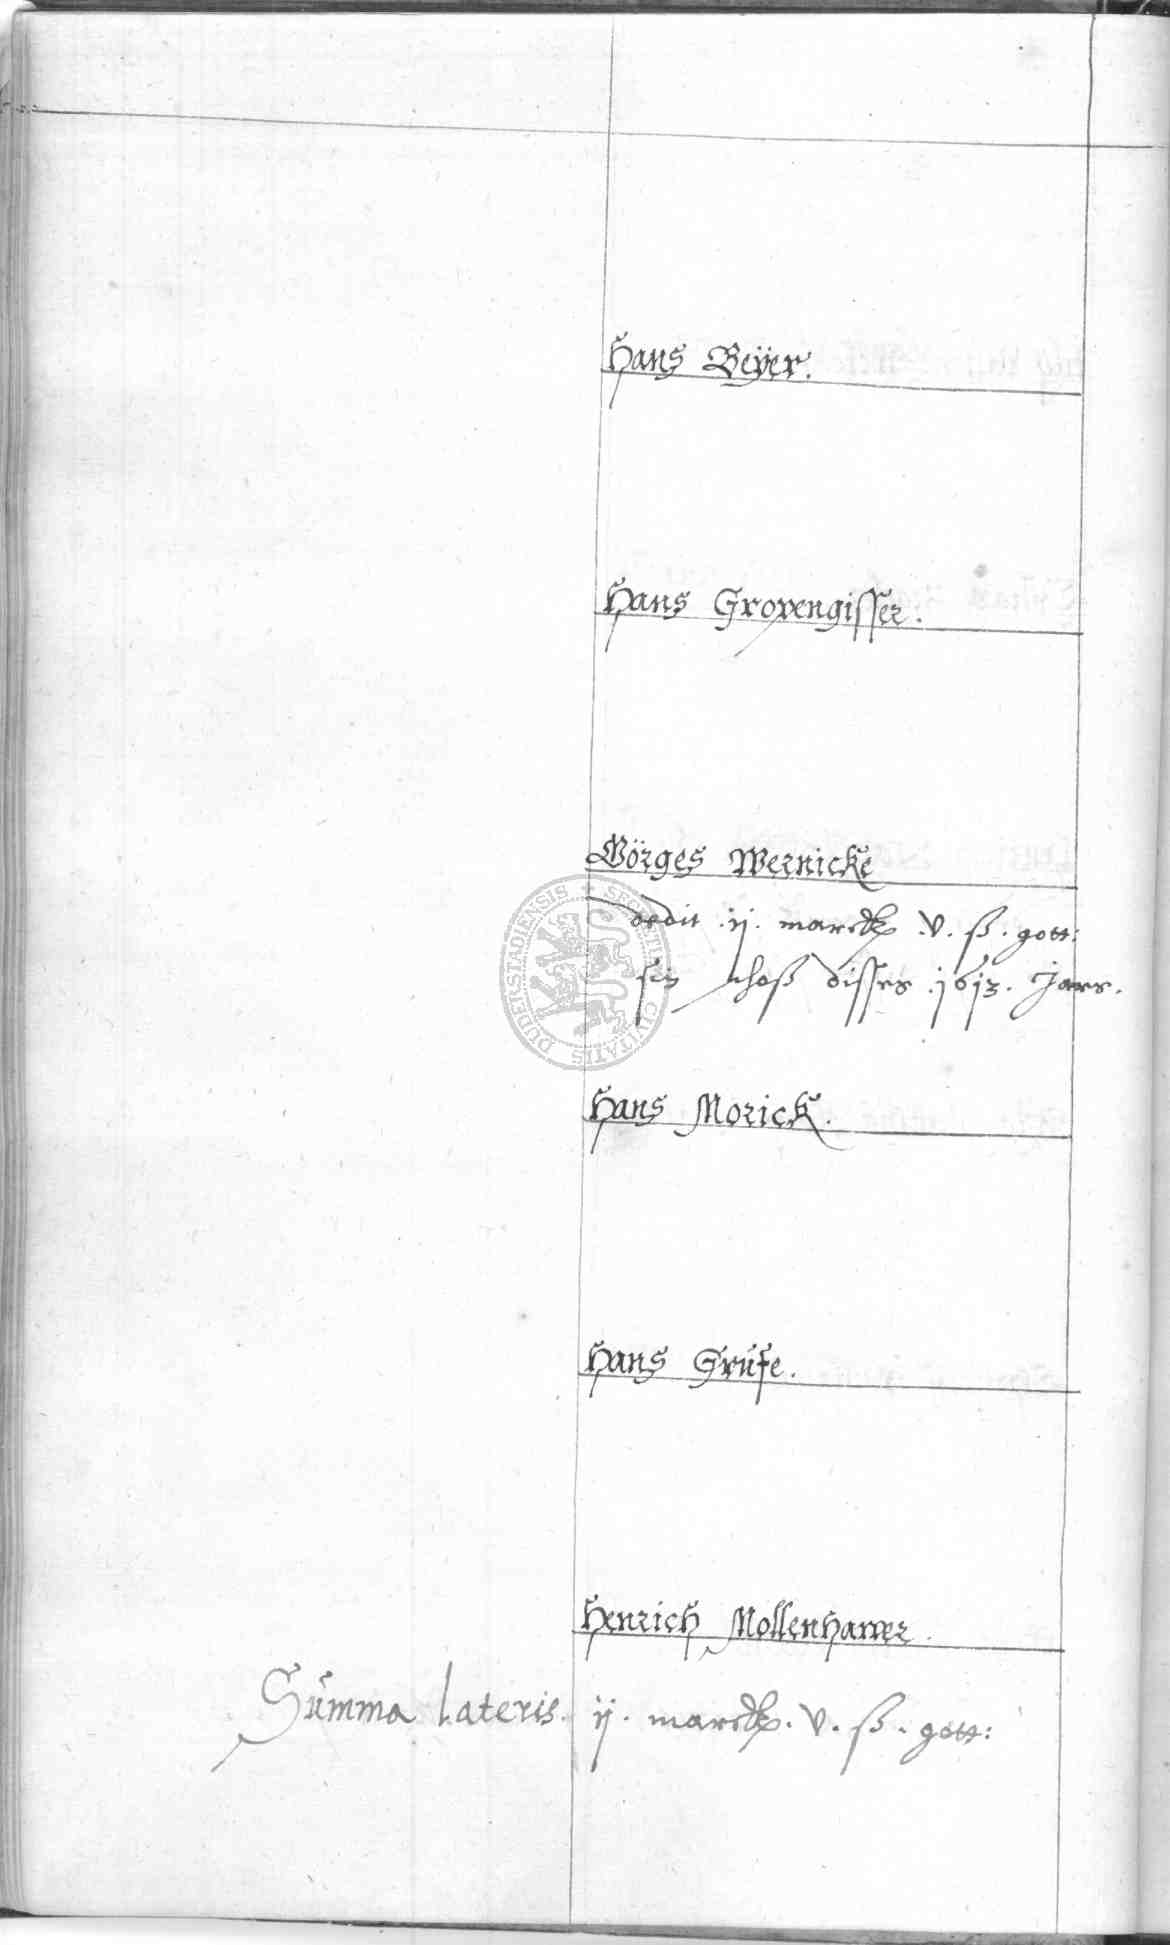 Hans Beÿer.
Hans Gropengisser.
Görges Wernicke
dedit .ij. marck .v. ß. gott:
sin schoß disses .1613. Jars.
Hans Morick.
Hans Grúfe.
Henrich Mollenhawer.
Summa Lateris. ij. marck. v. ß. gott:
SECRETUM CIVITATIS DUDERSTADIENSIS